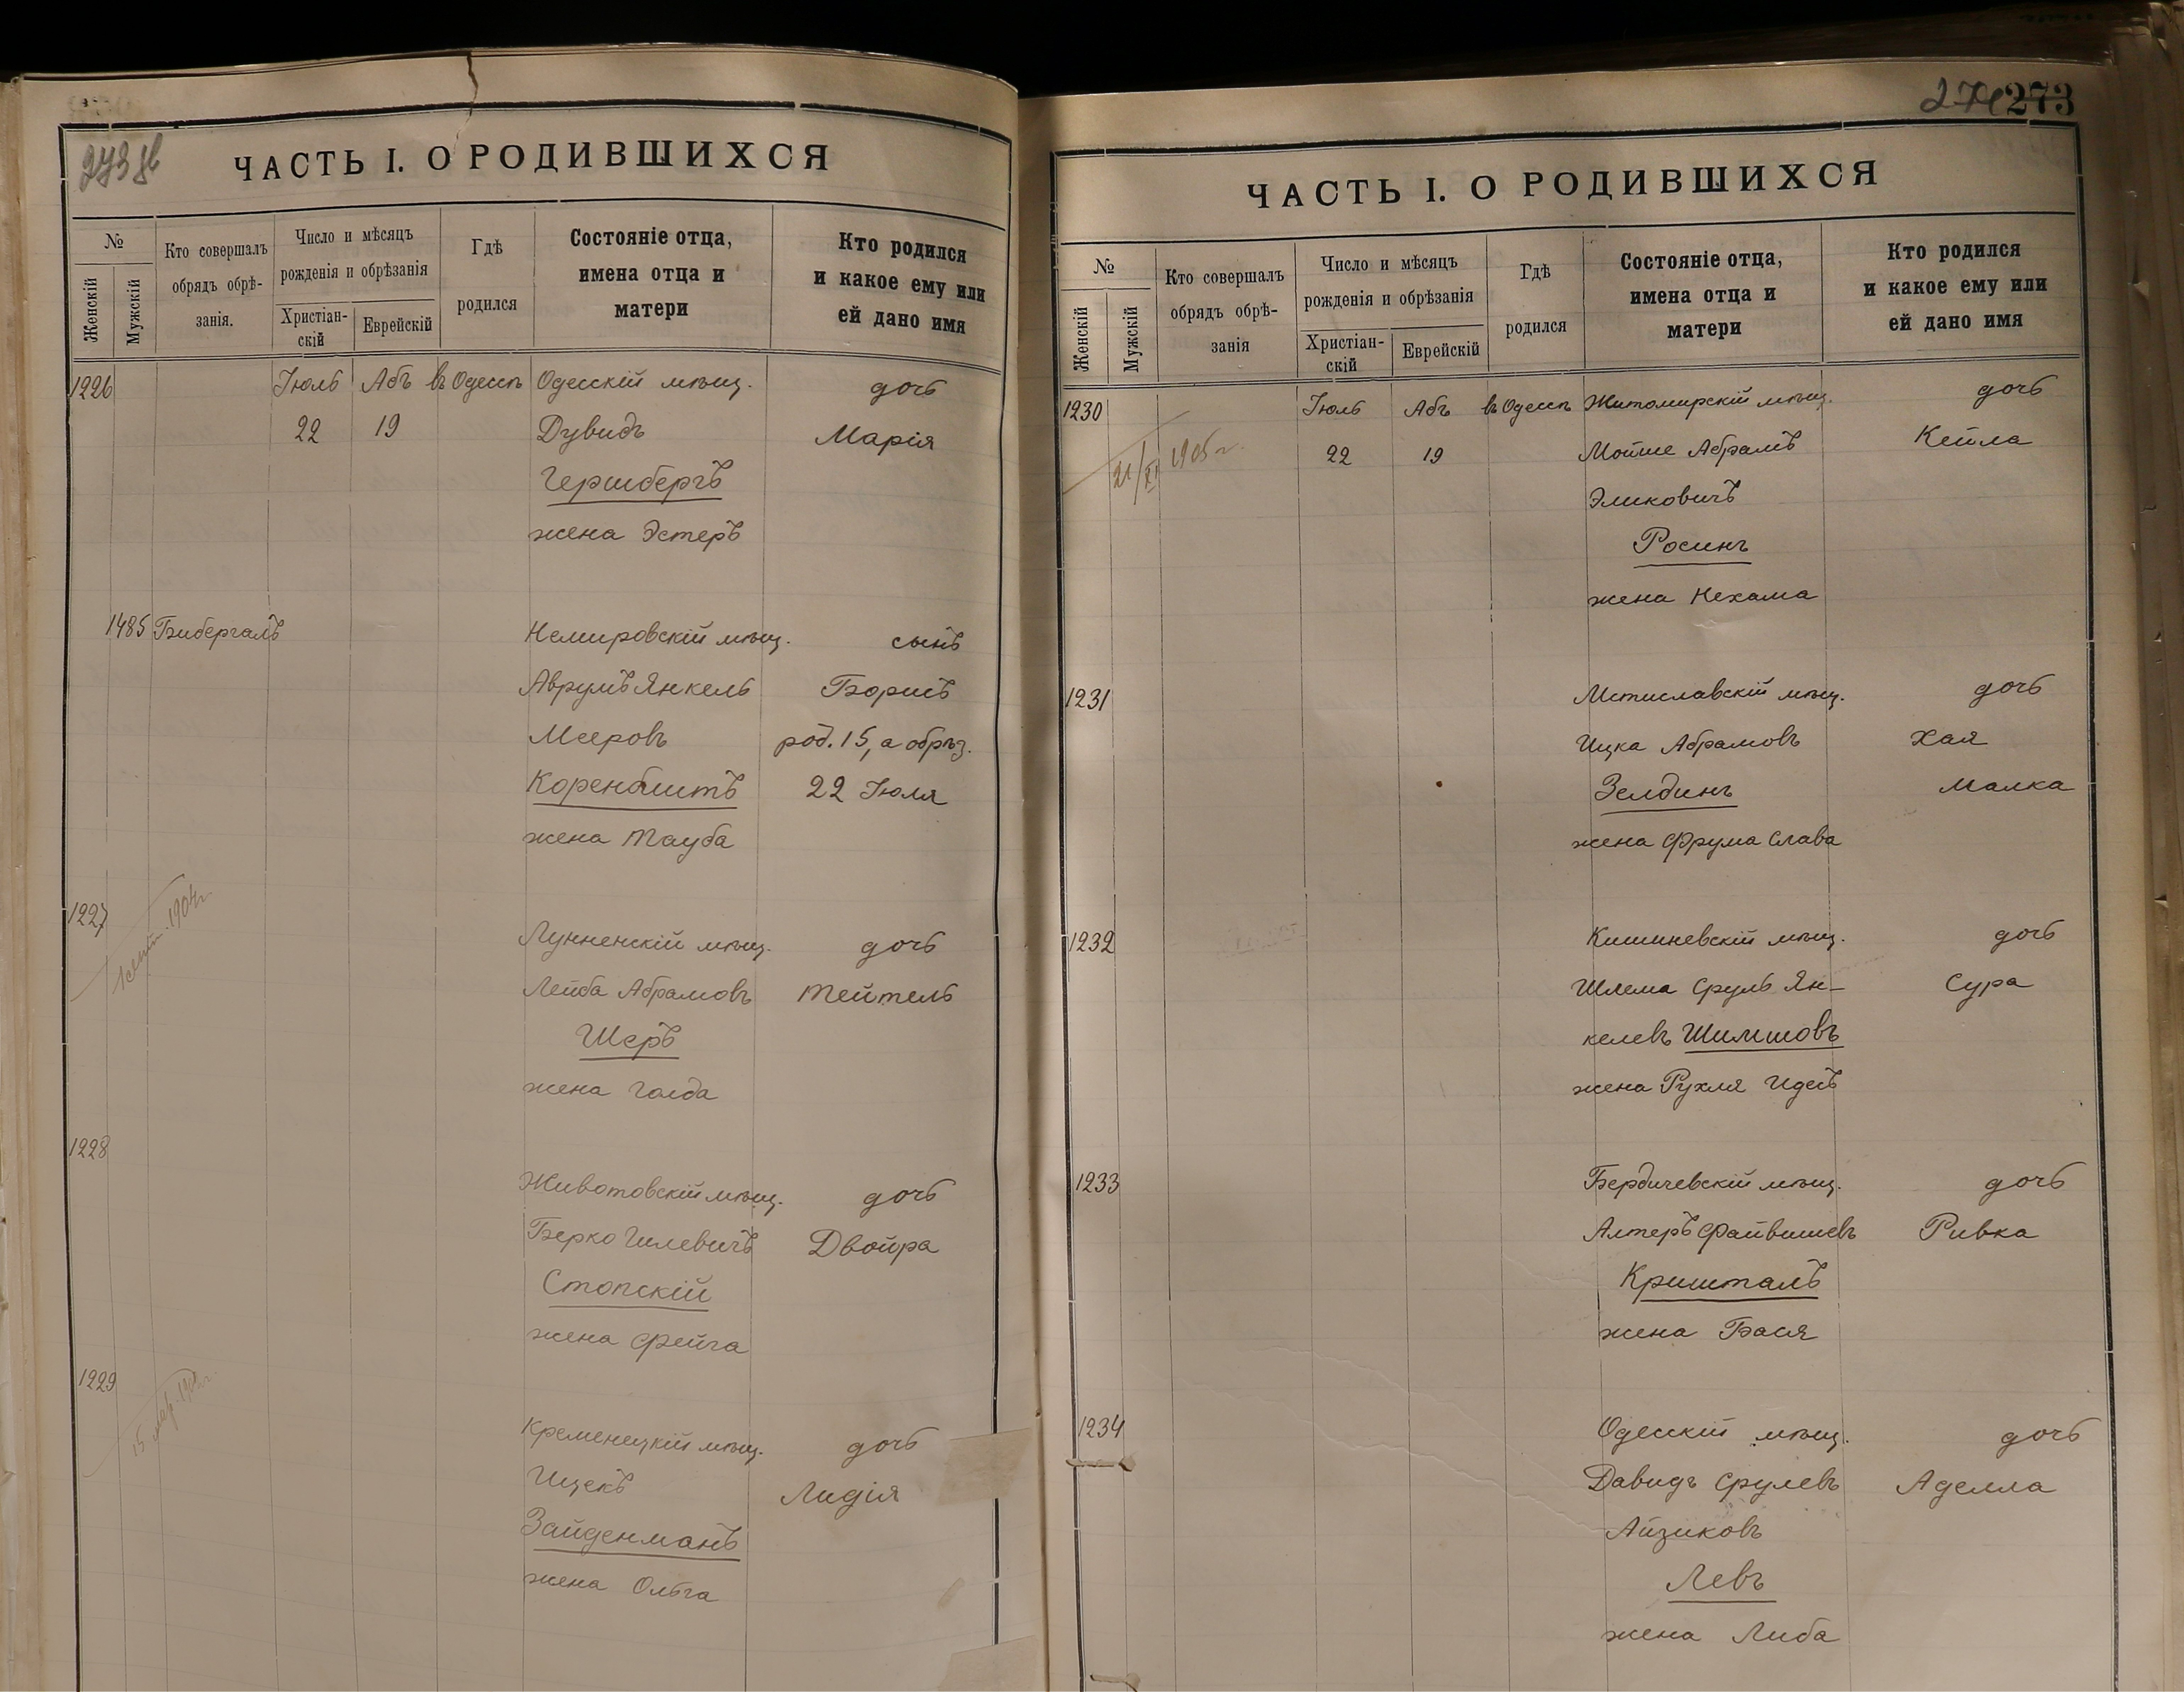 273 об
ЧАСТЬ I. О РОДИВШИХСЯ
№
Женскій
Мужскій
Кто совершалъ
обрядъ обрѣ-
занія.
Число и мѣсяцъ
рожденія и обрѣзанія
Христіан-
скій
Еврейскій
Гдѣ
родился
Состояніе отца,
имена отца и
матери
Кто родился
и какое ему или
ей дано имя
1226 Іюль Абъ въ Одессѣ Одесскій мѣщ. дочь
22 19 Дувидъ Марія
Гершбергъ
жена Эстеръ
1485 Бибергалъ Немировскій мѣщ. сынъ
Аврумъ Янкель Борисъ
Мееровъ род. 15, а обрѣз.
Коренблитъ 22 Іюля
жена Тауба
1227
1904г.
Лунненскій мѣщ. дочь
Лейба Абрамовъ Тейтель
Шеръ
жена Голда
1228
Животовскій мѣщ. дочь
Берко Гилевичъ Двойра
Стопскій
жена Фрейга
1229
15
Кременецкій мѣщ. дочь
Ицекъ Лидія
Зайденманъ
жена Ольга
274 273
ЧАСТЬ I. О РОДИВШИХСЯ
№
Женскій
Мужскій
Кто совершалъ
обрядъ обрѣ-
занія
Число и мѣсяцъ
рожденія и обрѣзанія
Христіан-
скій
Еврейскій
Гдѣ
родился
Состояніе отца,
имена отца и
матери
Кто родился
и какое ему или
ей дано имя
1230 Іюль Абъ въ Одессѣ Житомирскій мѣщ. дочь
21/XI 1905 г. 22 19 Мойше Абрамъ Кейла
Эликовичъ
Росинъ
жена Нехама
1231 Мстиславскій мѣщ. дочь
Ицка Абрамовъ Хая
Зелдинъ Малка
жена Фрума Слава
1232 Кишиневскій мѣщ. дочь
Шлема Сруль Ян- Сура
келевъ Шимшовъ
жена Рухля Идесъ
1233 Бердичевскій мѣщ. дочь
Алтеръ Файвишевъ Ривка
Кришталъ
жена Бася
1234 Одесскій мѣщ. дочь
Давидъ Срулевъ Аделла
Айзиковъ
Левъ
жена Либа